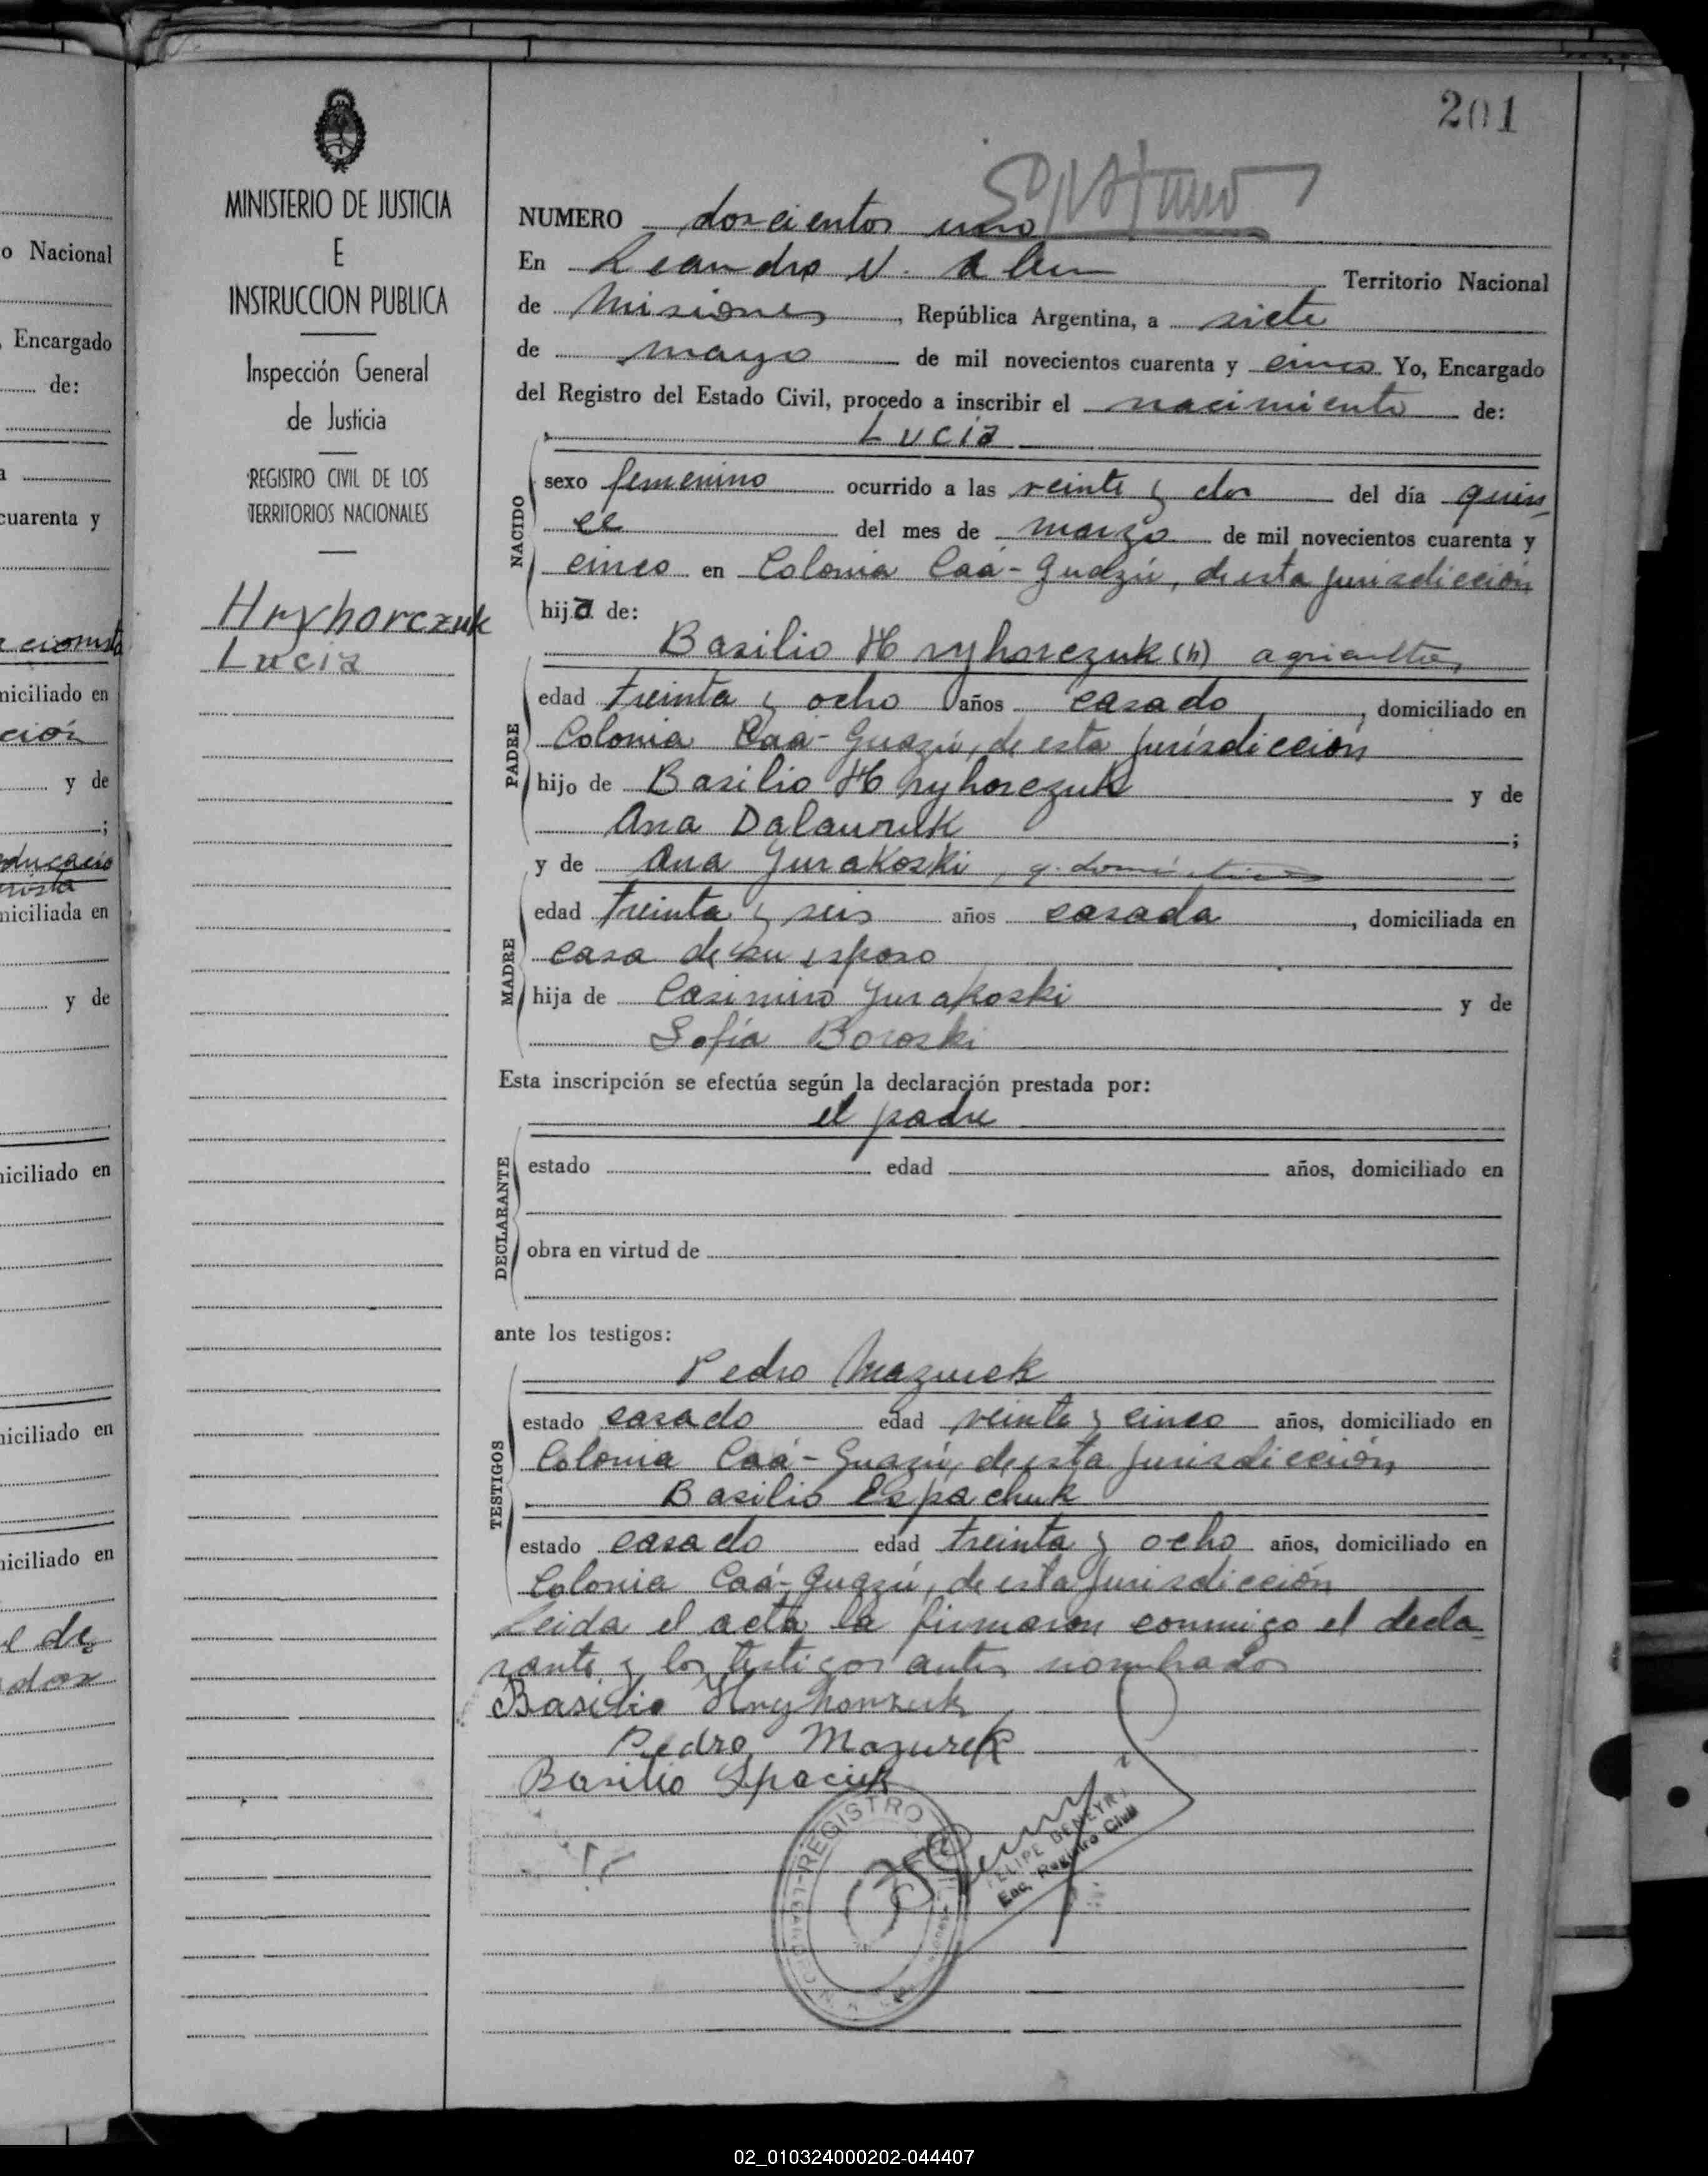 201
MINISTERIO DE JUSTICIA
E
INSTRUCCION PUBLICA
Inspección General
de Justicia
REGISTRO CIVIL DE LOS
TERRITORIOS NACIONALES
Hryhorczuk
Lucia
NUMERO doscientos uno
En Leandro N. Alem Territorio Nacional
de Misiones, República Argentina, a siete
de mayo de mil novecientos cuarenta y cinco Yo, Encargado
del Registro del Estado Civil, procedo a inscribir el nacimiento de:
Lucia
NACIDO
sexo femenino ocurrido a las veinte y dos del día quin
ce del mes de marzo de mil novecientos cuarenta y
cinco en Colonia Caá-Guazú, de esta jurisdicción
hija de:
Basilio Hryhorczuk (h) agricultor,
PADRE
edad treinta y ocho años casado, domiciliado en
Colonia Caá-Guazú, de esta jurisdicción
hijo de Basilio Hryhorczuk y de
Ana Dalawruk;
y de Ana Jurakoski, q. domésticos
MADRE
edad treinta y seis años casada, domiciliada en
casa de su esposo
hija de Casimiro Jurakoski y de
Sofía Boroski
Esta inscripción se efectúa según la declaración prestada por:
el padre
DECLARANTE
estado edad años, domiciliado en
obra en virtud de
ante los testigos:
Pedro Mazurek
TESTIGOS
estado casado edad veinte y cinco años, domiciliado en
Colonia Caá-Guazú, de esta jurisdicción
Basilio Espachuk
estado casado edad treinta y ocho años, domiciliado en
Colonia Caá-Guazú, de esta jurisdicción
Leida el acta la firmaron conmigo el decla
rante y los testigos antes nombrados
Basilio Hryhorczuk
Pedro Mazurek
Basilio Spaciuk
REGISTRO
FELIPE BENEYR
Enc. Registro Civil
o Nacional
, Encargado
de:
cuarenta y
niciliado en
ción
y de
;
niciliada en
y de
niciliado en
niciliado en
niciliado en
02_010324000202-044407